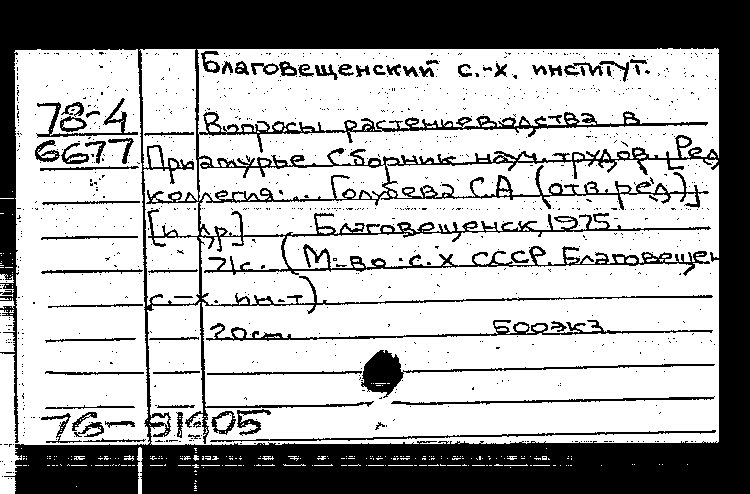 Благовещенский с.-х. институт.
78-4 Вопросы растениеводства в
6677 Приамурье. Сборник науч. трудов. [Ред
коллегия: ... Голубева С.А (отв. ред.)]
[и др.]. Благовещенск, 1975.
71с. (М-во с.х СССР. Благовещен
с.-х. ин-т).
20см. 500экз.
76-81905